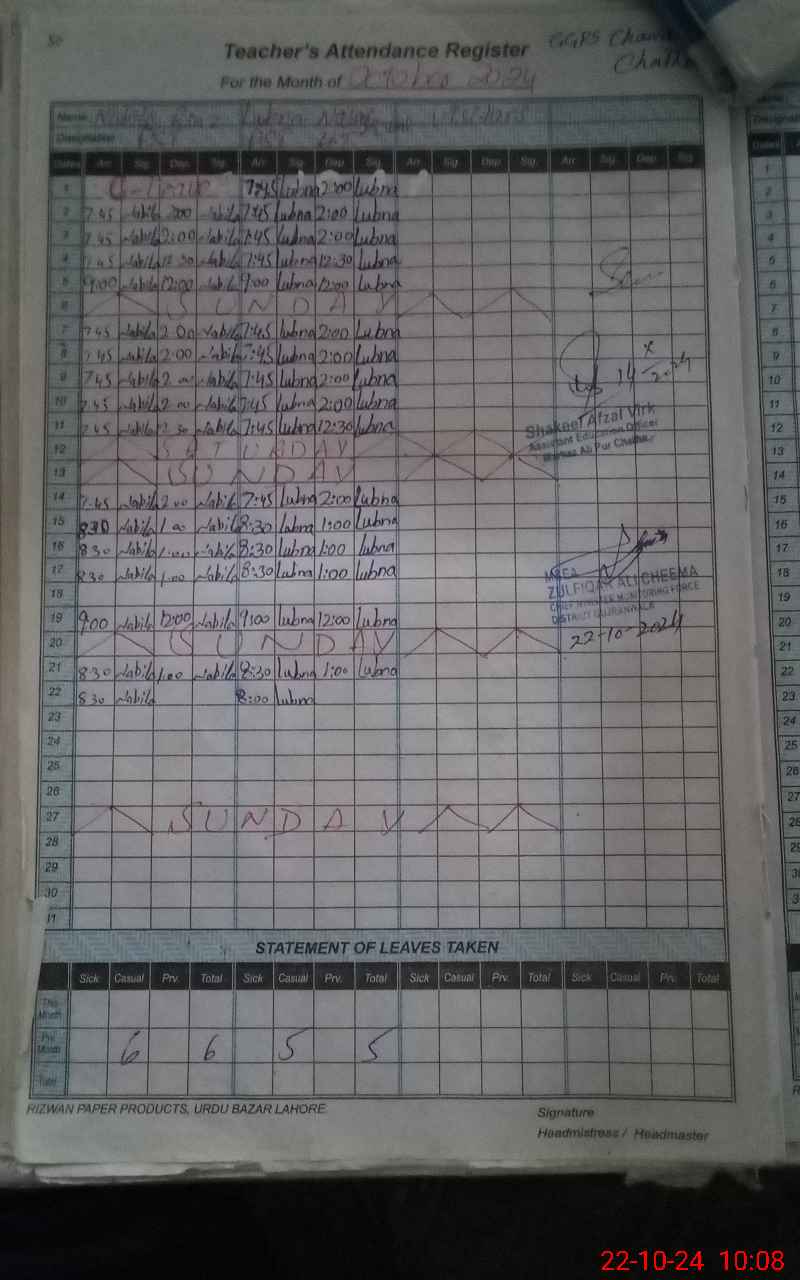 50
Teacher's Attendance Register GGPS
For the Month of October 2024
Name
Designation
Dates Arr. Sig. Dep. Sig. Arr. Sig. Dep. Sig. Arr. Sig. Dep. Sig. Arr. Sig. Dep. Sig.
1 7:45 Lubna 2:00 Lubna
2 7.45 Nabila 2.00 Nabila 7:45 Lubna 2:00 Lubna
3 7.45 Nabila 2:00 Nabila 7:45 Lubna 2:00 Lubna
4 7.45 Nabila 12.30 Nabila 7:45 Lubna 12:30 Lubna
5 9:00 Nabila 12:00 Nabila 9:00 Lubna 12:00 Lubna
6 SUNDAY
7 7.45 Nabila 2.00 Nabila 7:45 Lubna 2:00 Lubna
8 7.45 Nabila 2.00 Nabila 7:45 Lubna 2:00 Lubna
9 7.45 Nabila 2.00 Nabila 7:45 Lubna 2:00 Lubna
10 7.45 Nabila 2.00 Nabila 7:45 Lubna 2:00 Lubna
11 7.45 Nabila 12.30 Nabila 7:45 Lubna 12:30 Lubna
12 SATURDAY
13 SUNDAY
14 7.45 Nabila 2.00 Nabila 7:45 Lubna 2:00 Lubna
15 830 Nabila 1.00 Nabila 8:30 Lubna 1:00 Lubna
16 8.30 Nabila 1.00 Nabila 8:30 Lubna 1:00 Lubna
17 8.30 Nabila 1.00 Nabila 8:30 Lubna 1:00 Lubna
18
19 9:00 Nabila 12:00 Nabila 9:00 Lubna 12:00 Lubna
20 SUNDAY
21 8.30 Nabila 1.00 Nabila 8:30 Lubna 1:00 Lubna
22 8.30 Nabila 8:00 Lubna
23
24
25
26
27 SUNDAY
28
29
30
14 X 2024
Shakeel Afzal Virk
Assistant Education Officer
Markaz Ali Pur Chatha
MEA
ZULFIQAR ALI CHEEMA
CHIEF MINISTER MONITORING FORCE
DISTRICT GUJRANWALA
22-10-2024
STATEMENT OF LEAVES TAKEN
Sick Casual Prv. Total Sick Casual Prv. Total Sick Casual Prv. Total Sick Casual Prv. Total
This Month
Prv. Month 6 6 5 5
Total
RIZWAN PAPER PRODUCTS, URDU BAZAR LAHORE.
Signature
Headmistress / Headmaster
22-10-24 10:08